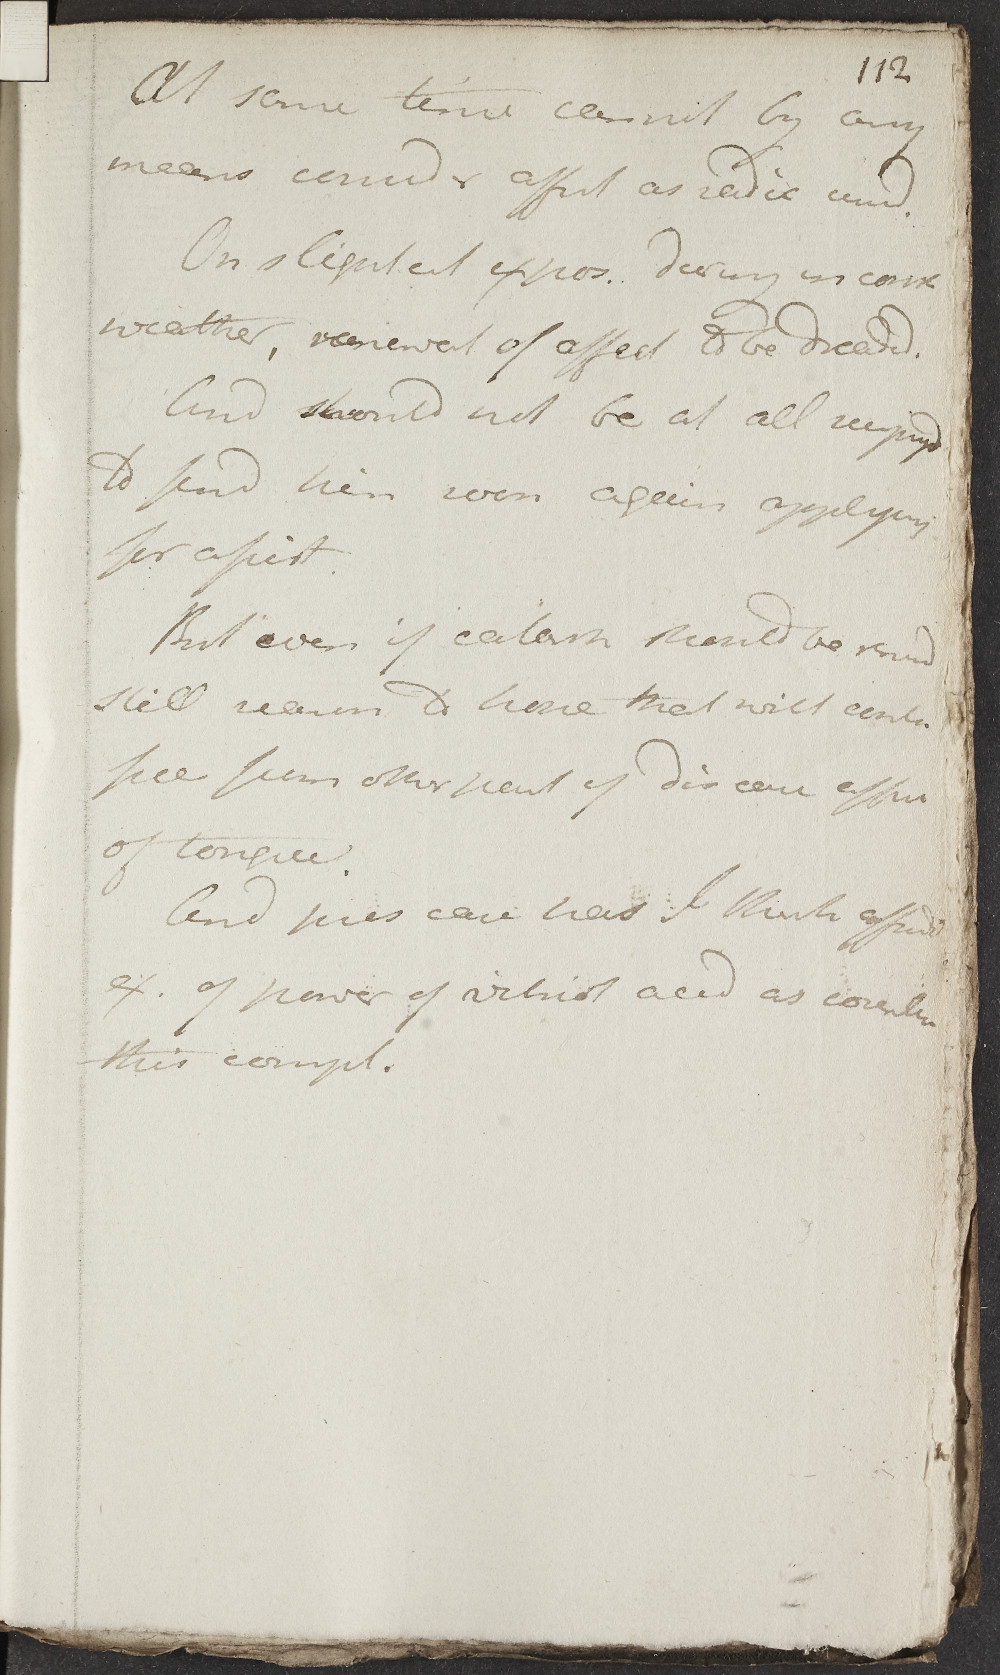 112
At same time cannot by any
means consider affect as radic cured.
On slightest expos. during incons
weather, renewal of affect to be dreaded.
And should not be at all surprysd
to find him soon again applying
for assist.
But even if catarrh should be renewd
still reason to hope that will contin
free from other part of disease affect
of tongue.
And pres case has I think affordd
ex. of power of vitriol acid as counter
this compl.